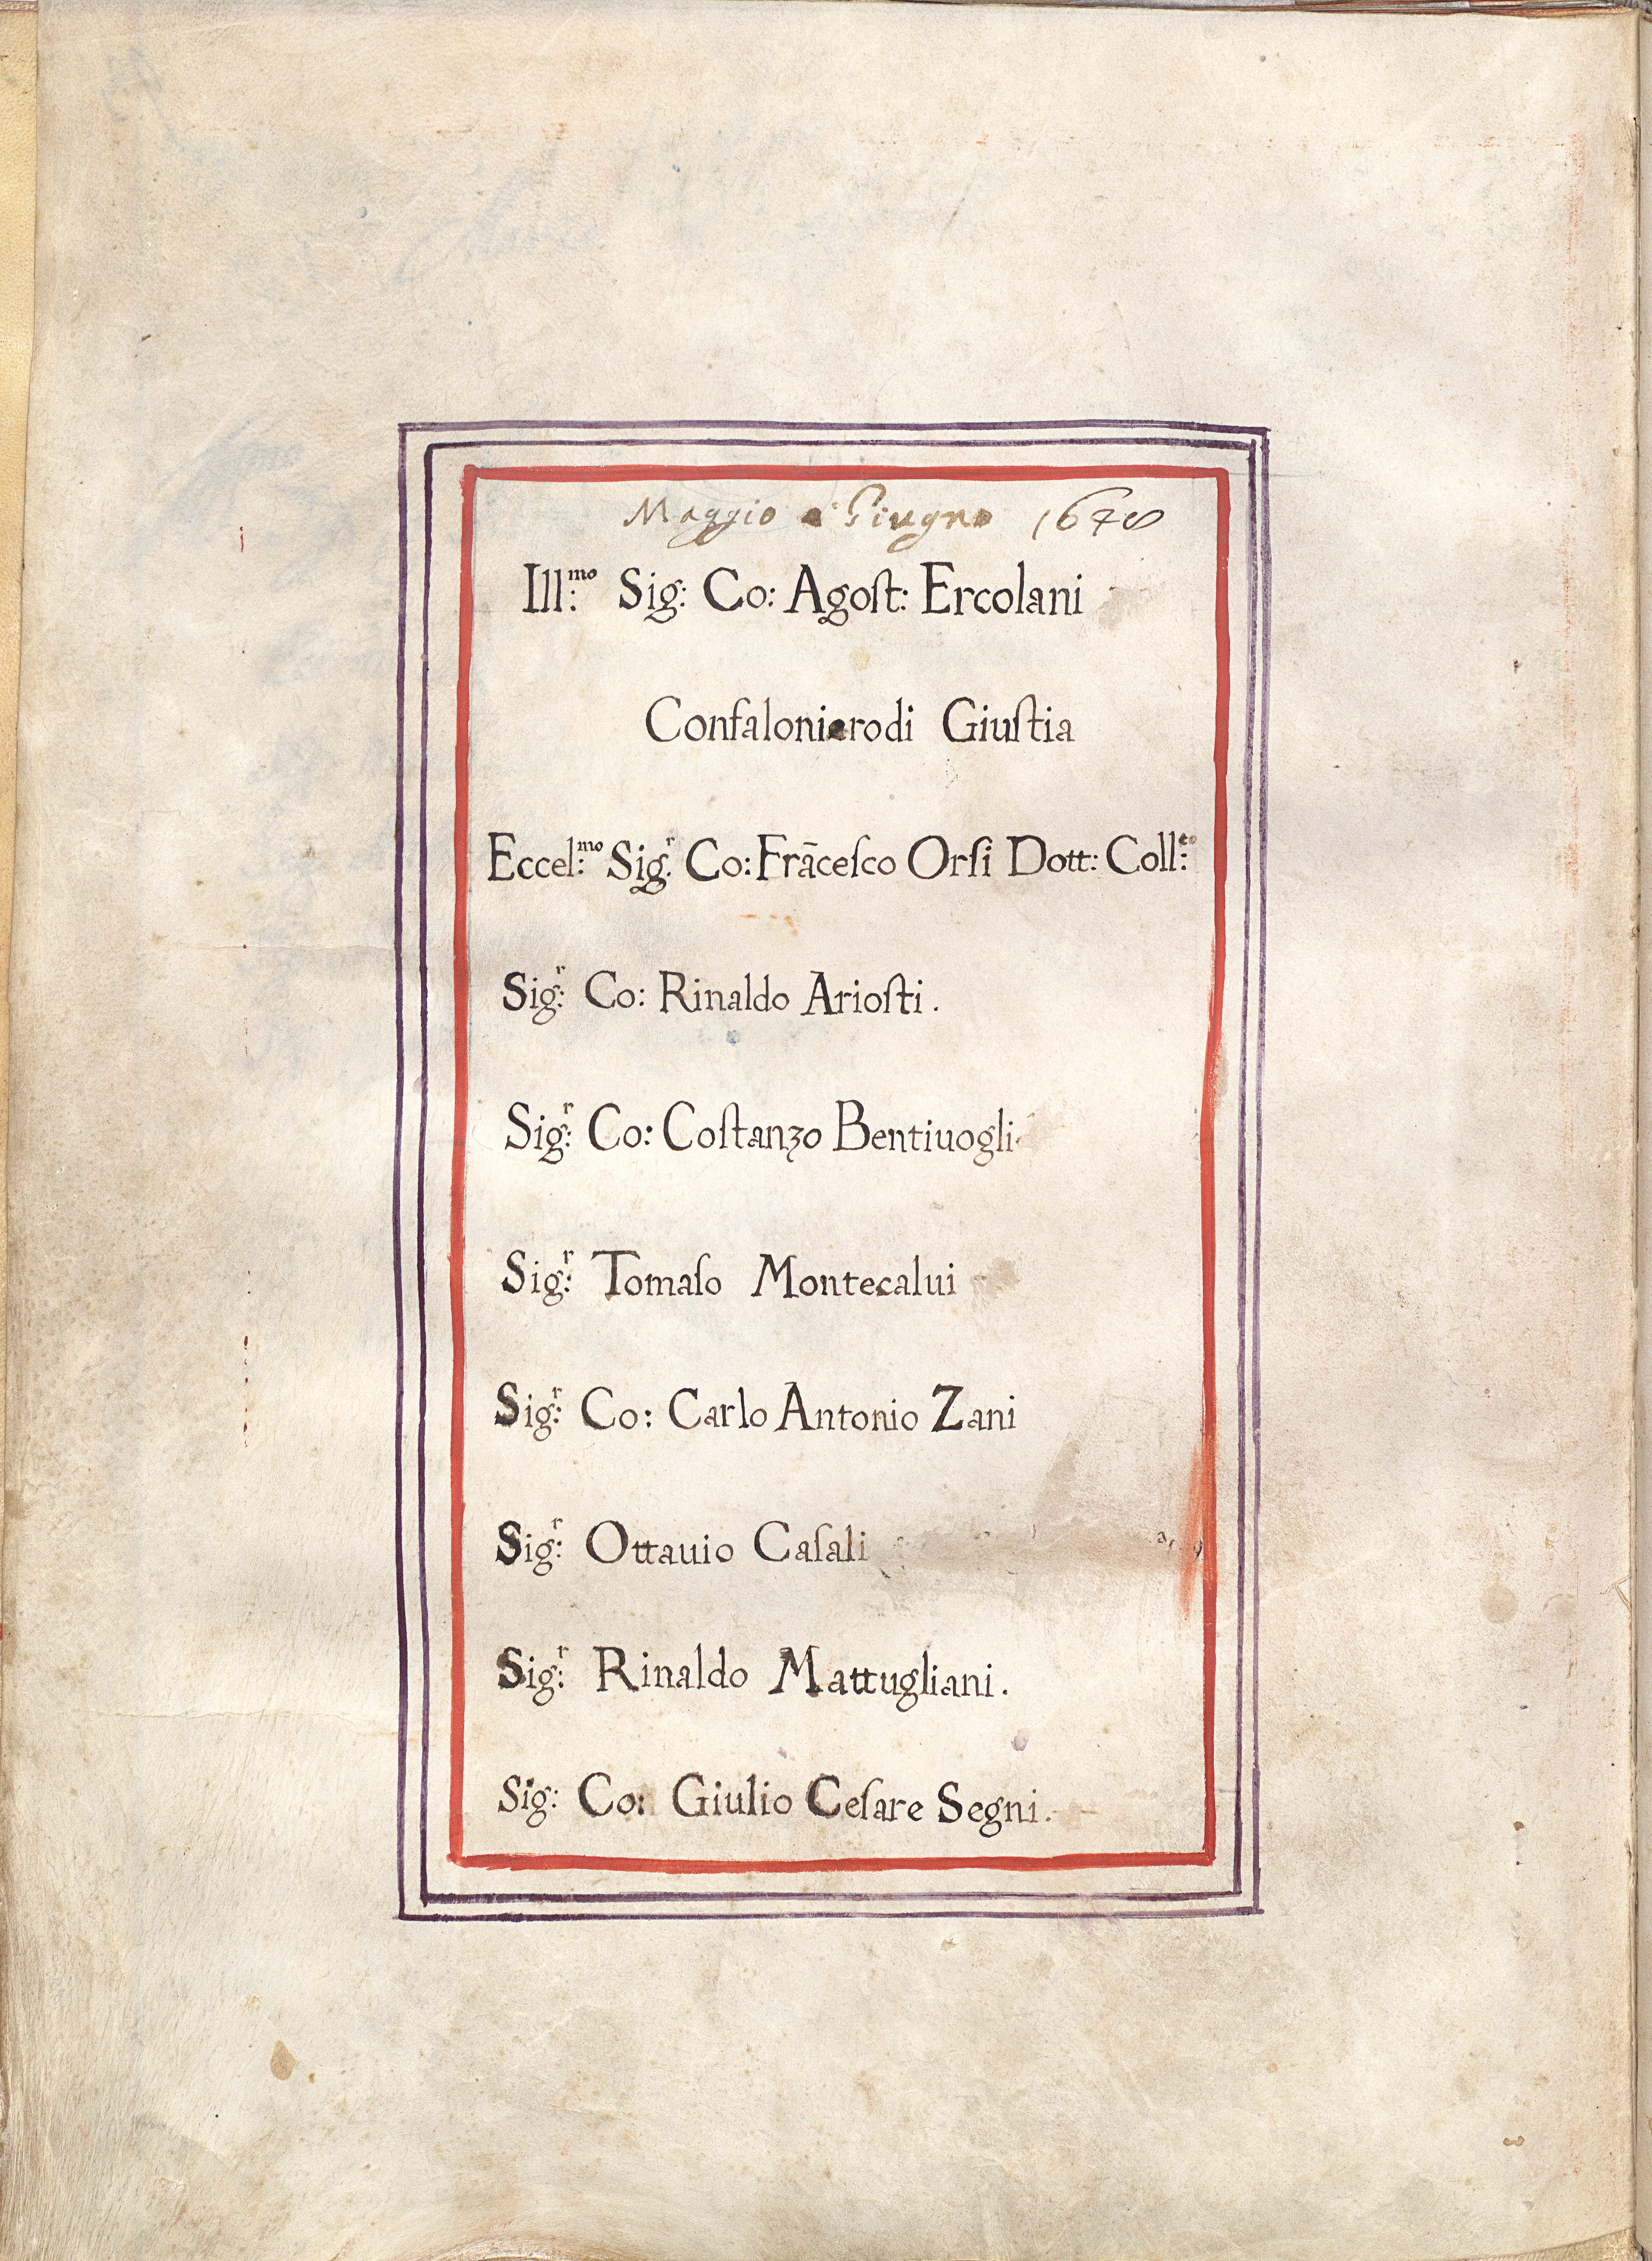 Maggio e Giugno 1678
Ill:mo Sig: Co: Agoſt: Ercolani
Confalonierodi Giuſtia
Eccel:mo Sig:r Co: Frāceſco Orſi Dott: Coll:to
Sig:r Co: Rinaldo Arioſti.
Sig:r Co: Coſtanzo Bentiuogli
Sig:r Tomaſo Montecalui
Sig:r Co: Carlo Antonio Zani
Sig:r Ottauio Caſali
Sig:r Rinaldo Mattugliani.
Sig: Co: Giulio Ceſare Segni.